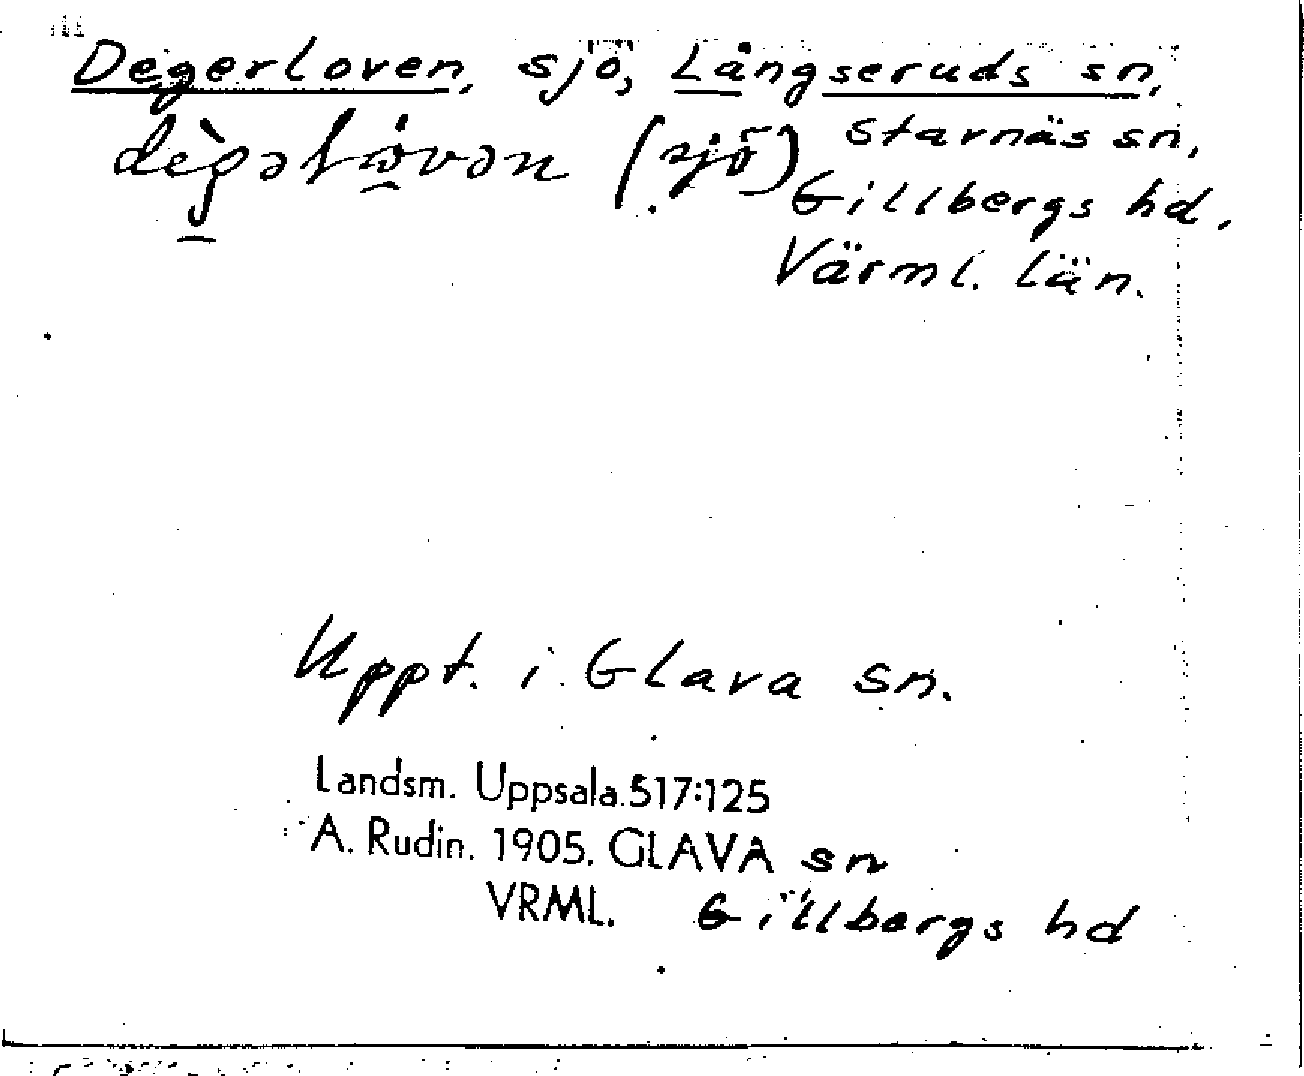 Degerloven, sjö, Långseruds sn,
(sjö) Stavnäs sn,
Gillbergs hd,
Värml. län.
Uppt. i Glava sn.
Landsm. Uppsala.517:125
A. Rudin. 1905. GLAVA sn
VRML. Gillbergs hd